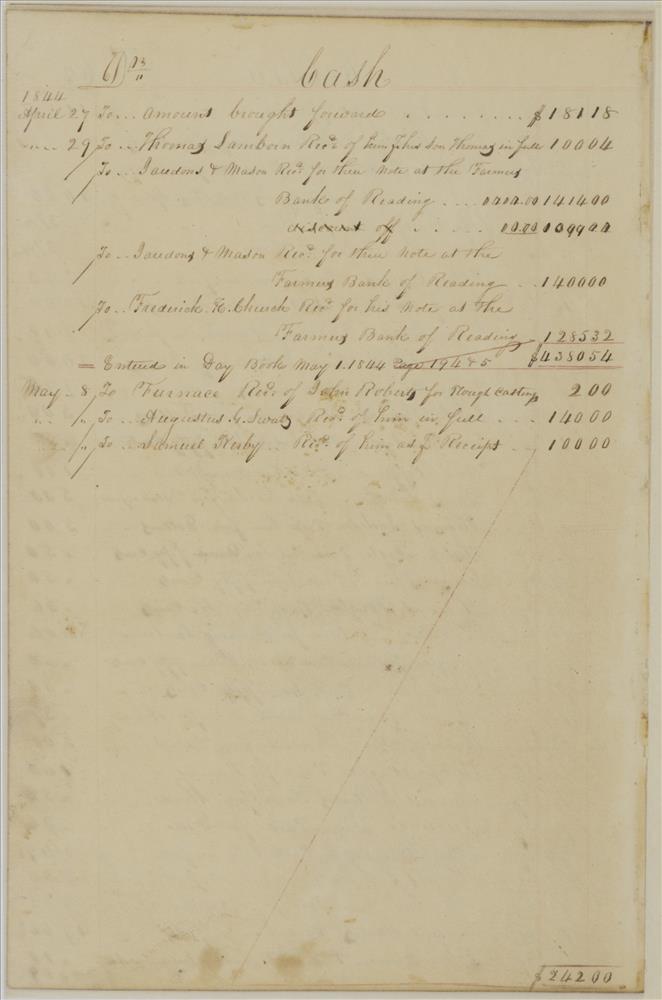 Drs Cash
1844
April 27 To... amount brought forward ........ $18118
..... 29 To... Thomas Lamborn Recd. of him p his son Thomas in full 10004
To... Jacksons & Mason Recd. for their Note at the Farmers
Bank of Reading .... 141400
discount off ..... 00.00
To... & Mason Recd. for their Note at the
Farmers Bank of Reading .. 140000
To.. Frederick Church Recd. for his Note at the
Farmers Bank of Reading 128532
= Entered in Day Book May 1. 1844 page 194 & 5 $438054
May .. 8 To Furnace Recd. of John Roberts for Rough Castings 200
" " To.. Augustus G. Recd. of him in full ... 14000
" To.. Samuel Kirby .. Recd. of him as p Receipt .. 10000
$24200